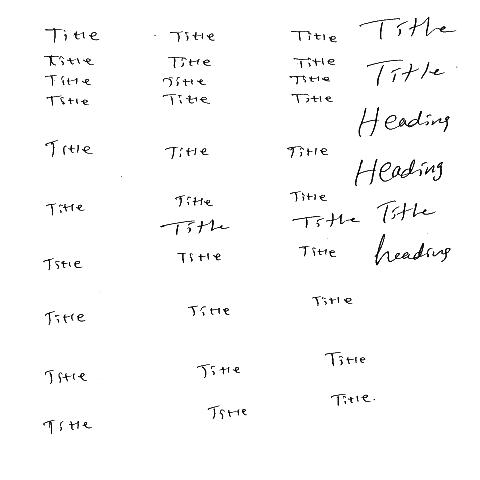 Title Title Title Title
Title Title Title Title
Title Title Title
Title Title Title Heading
Title Title Title Heading
Title Title Title Title
Title Title
Title Title Title heading
Title Title Title
Title Title Title
Title Title Title.